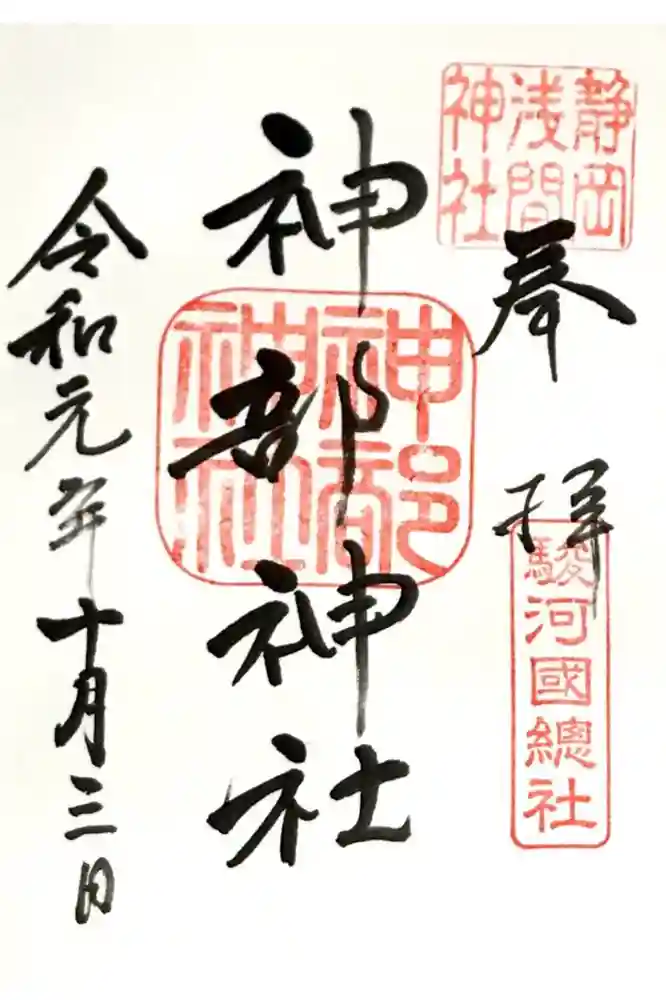 静岡
浅間
神社
奉拝
駿河國總社
神部神社
神部
神社
令和元年十月三日